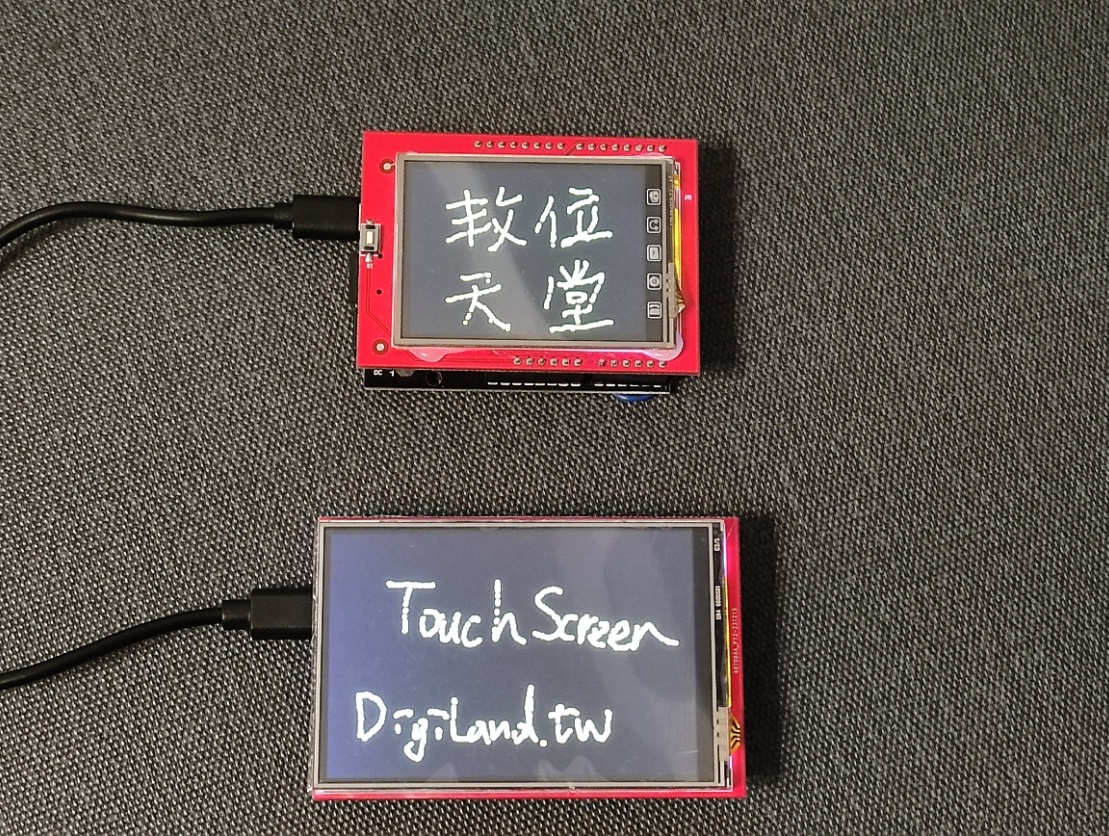 敎位
天堂
Touch Screen
Digiland.tw